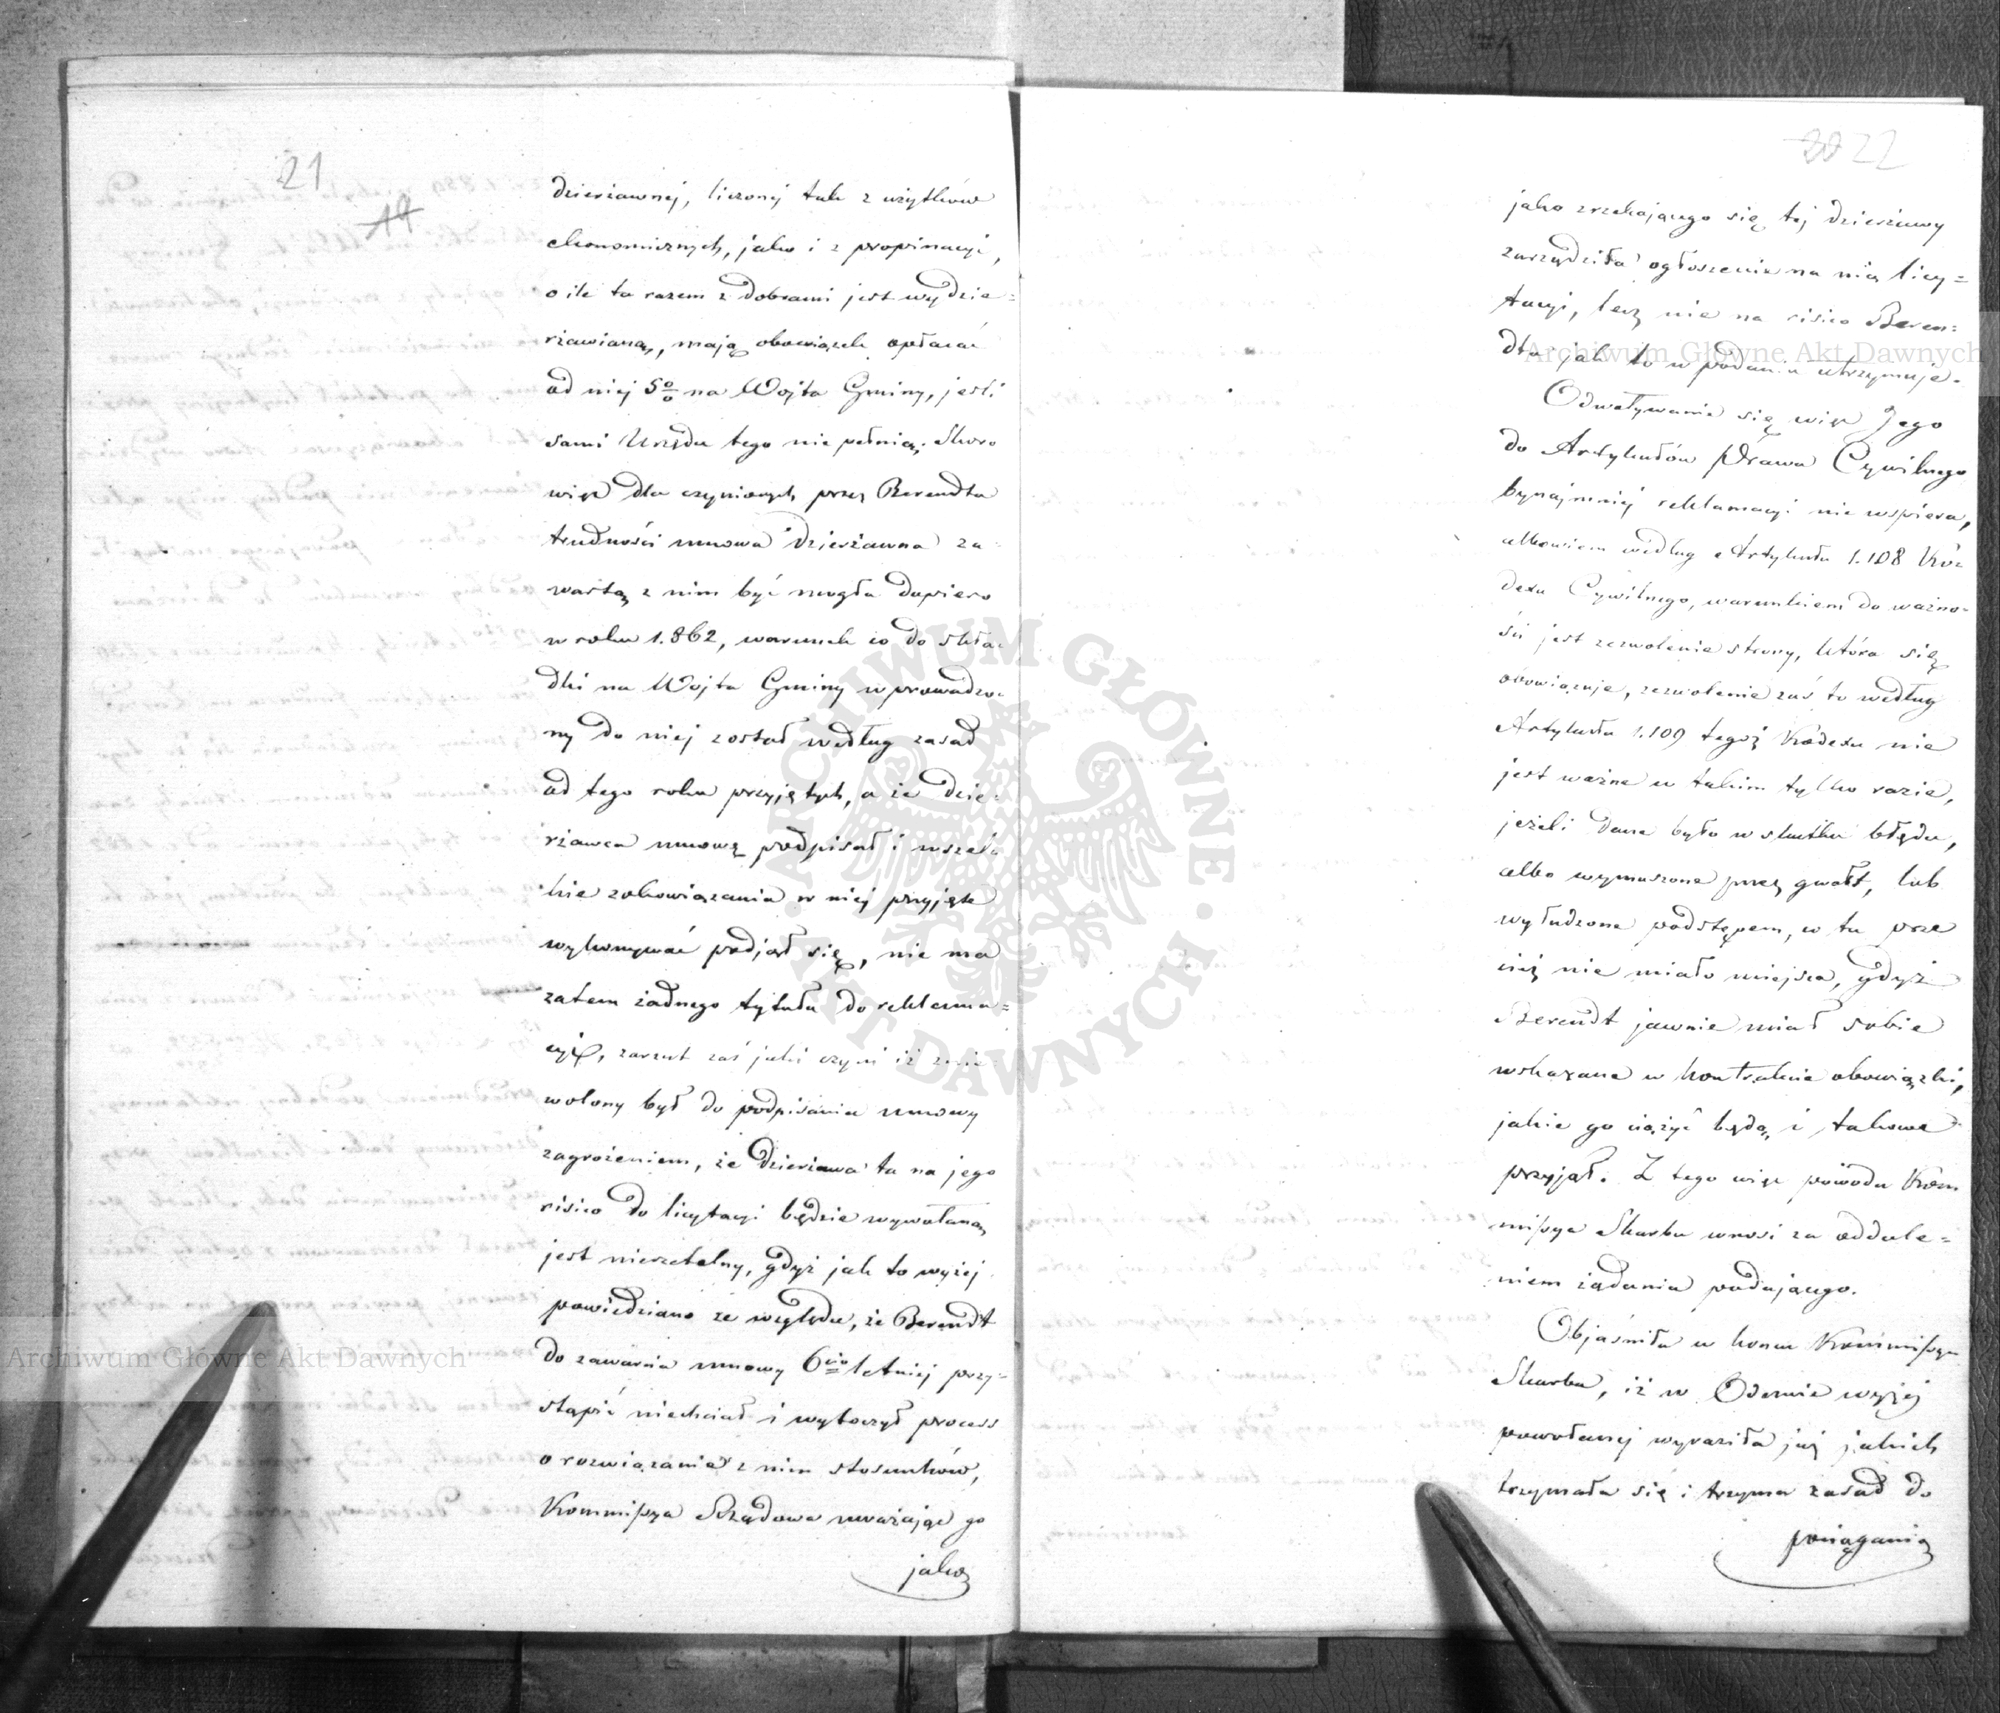 21
19
dzierżawnej, liczonej tak z użytków
ekonomicznych, jako i z propinacyi,
o ile ta razem z dobrami jest wydzie=
rżawianą, mają obowiązek opłacać
od niej 5 0/0 na Wojta Gminy, jeśli
sami Urzędu tego nie pełnią. Skoro
więc dla czynionych przez Berendta
trudności umowa dzierżawna za
wartą z nim być mogła dopiero
w roku 1.862, warunek co do skła
dki na Wojta Gminy wprowadzo
ny do niej został według zasad
od tego roku przyjętych, a że dzie=
rżawca umowę podpisał i wszel
kie zobowiązania w niej przyjęte
wykonywać podjął się, nie ma
zatem żadnego tytułu do reklama=
cyi, zarzut zaś jaki czyni iż znie
wolony był do podpisania umowy
zagrożeniem, że dzierżawa ta na jego
risico do licytacyi będzie wywołaną
jest nierzetelny, gdyż jak to wyżej
powiedziano ze względu, że Berendt
do zawarcia umowy 6cio letniej przy=
stąpić niechciał i wytoczył process
o rozwiązanie z nim stosunków,
Kommissya Rządowa uważając go
jako
22
jako zrzekającego się tej dzierżawy
zarządziła ogłoszenie na nią licy=
tacyi, lecz nie na risico Beren=
dta jak to w podaniu utrzymuje.
Odwoływanie się więc Jego
do Artykułów Prawa Cywilnego
bynajmniej reklamacyi nie wspiera,
albowiem według Artykułu 1.108 Ko=
dexu Cywilnego, warunkiem do ważno=
ści jest zezwolenie strony, która się
obowiązuje, zezwolenie zaś to według
Artykułu 1.109 tegoż Kodexu nie
jest ważne w takim tylko razie,
jeżeli dane było w skutku błędu,
albo wymuszone przez gwałt, lub
wyłudzone podstępem, co tu prze
cież nie miało miejsca, gdyż
Berendt jawnie miał sobie
wskazane w kontrakcie obowiązki,
jakie go ciążyć będą i takowe
przyjął. Z tego więc powodu Kom
missya Skarbu wnosi za oddale=
niem żądania podającego.
Objaśniła w końcu Kommissya
Skarbu, iż w Odezwie wyżej
powołanej wyraziła już jakich
trzymała się i trzyma zasad do
pociągania
Archiwum Główne Akt Dawnych
Archiwum Główne Akt Dawnych
ARCHIWUM GŁÓWNE
AKT DAWNYCH